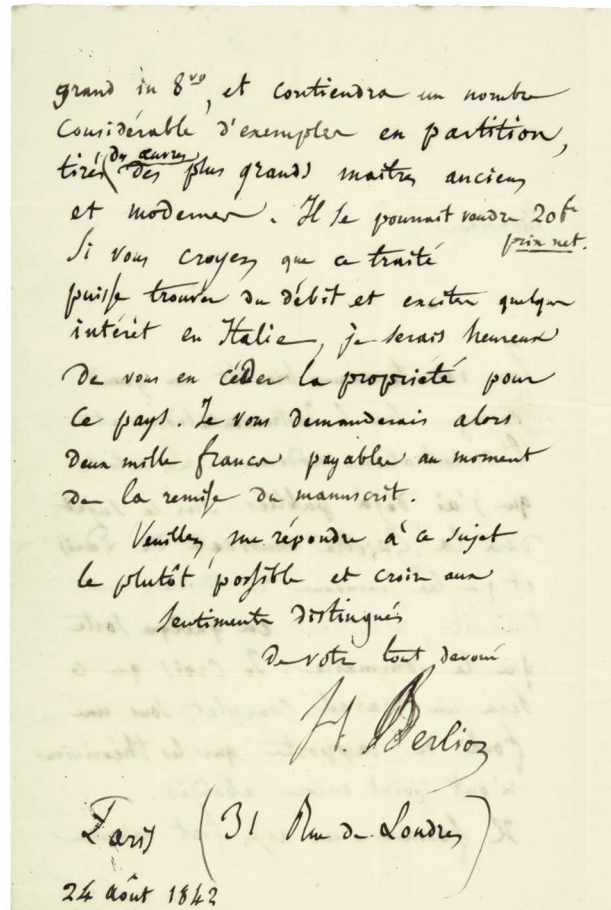 grand in 8vo, et contiendra un nombre
Considérable d'exemples en partition,
tirés (des œuvres
des plus grands maîtres anciens
et modernes. Il se pourrait vendre 20 fr
prix net.
Si vous croyez que ce traité
puisse trouver du débit et exciter quelque
intérêt en Italie, je serais heureux
De vous en céder la propriété pour
Ce pays. Je vous demanderais alors
deux mille francs payables au moment
de la remise du manuscrit.
Veuillez me répondre à ce sujet
le plutôt possible et croire aux
Sentiments distingués
de votre tout dévoué
H. Berlioz
Paris (31 Rue de Londres)
24 août 1842